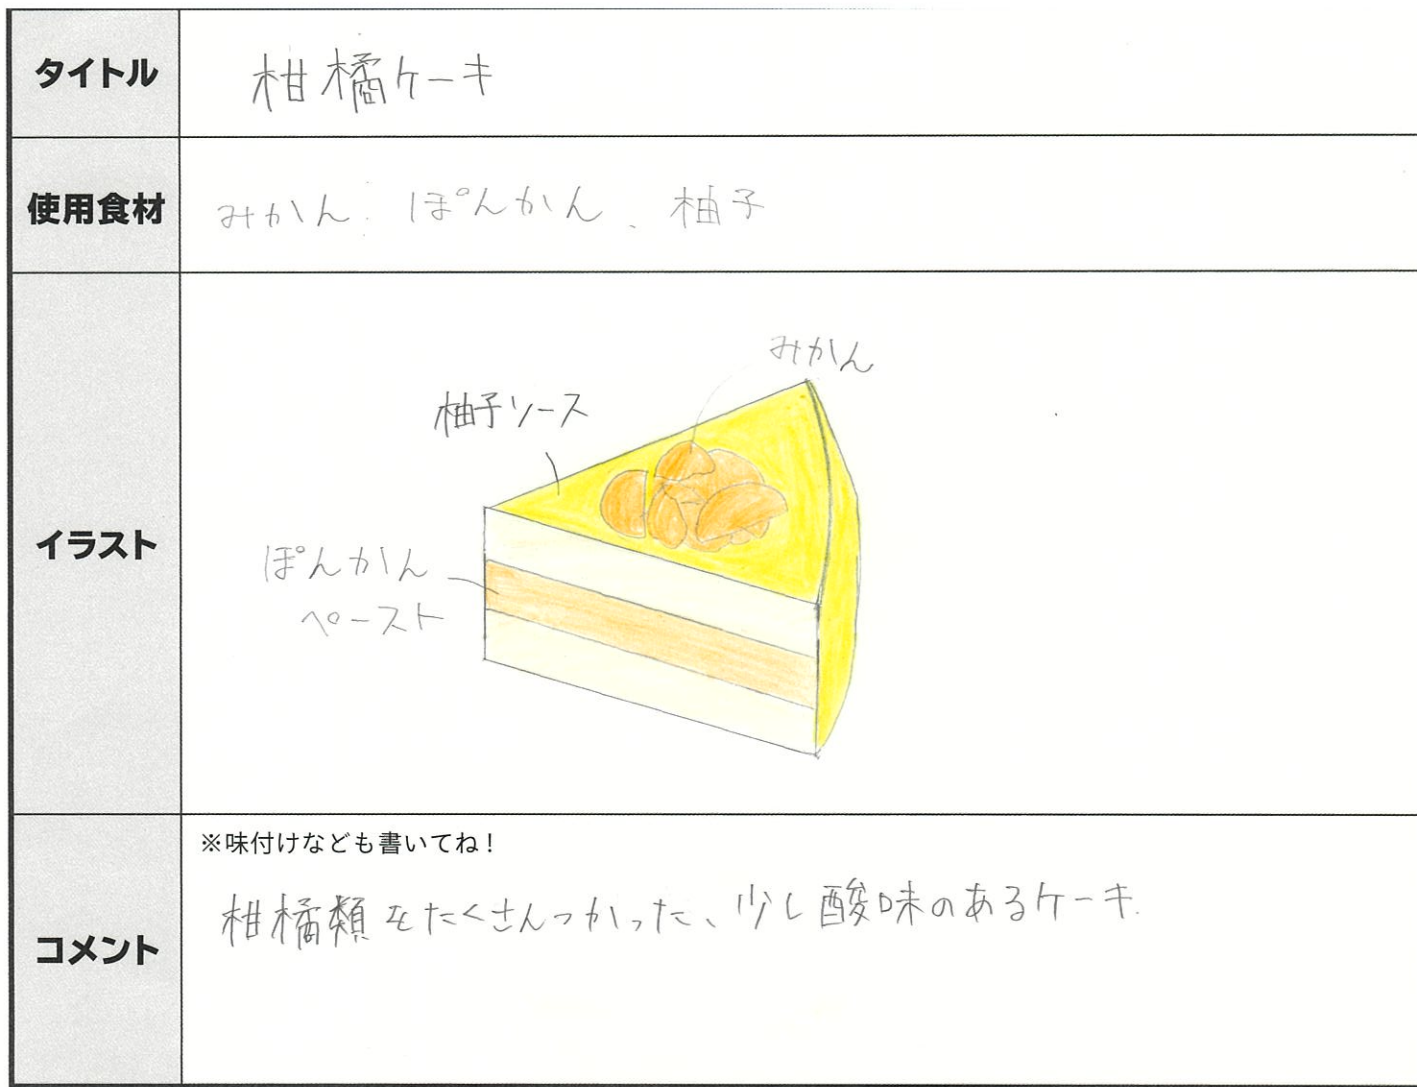 タイトル
柑橘ケーキ
使用食材
みかん、ぽんかん、柚子
イラスト
みかん
柚子ソース
ぽんかん
ペースト
コメント
※味付けなども書いてね！
柑橘類をたくさんつかった、少し酸味のあるケーキ.